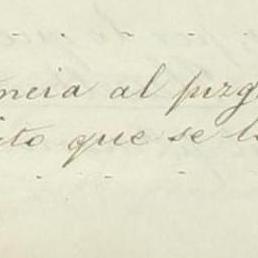 ncia al juzg
ito que se l